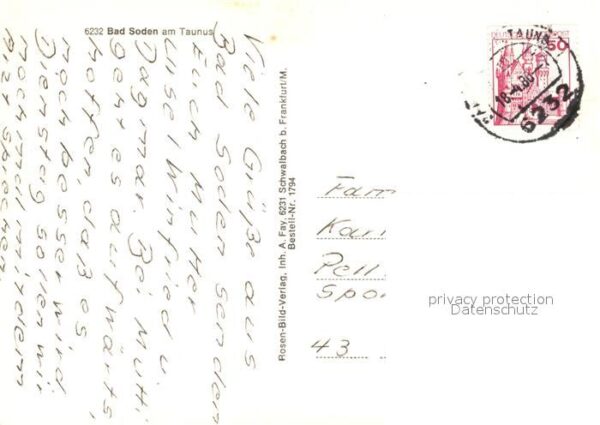 6232 Bad Soden am Taunus
Viele Grüße aus
Bad Soden senden
Euch Mutter
Luise, Winfried u.
Dagmar. Bei Mutti
geht es aufwärts,
hoffen, daß es
noch besser wird.
Dienstag sollen wir
nochmal mit dem
Arzt sprechen.
Rosen-Bild-Verlag, Inh. A. Fay, 6231 Schwalbach b. Frankfurt/M.
Bestell-Nr. 1794
TAUNUS
50
18.-4.80
6232
Fam
Kar
Pell
Spo
43
privacy protection
Datenschutz